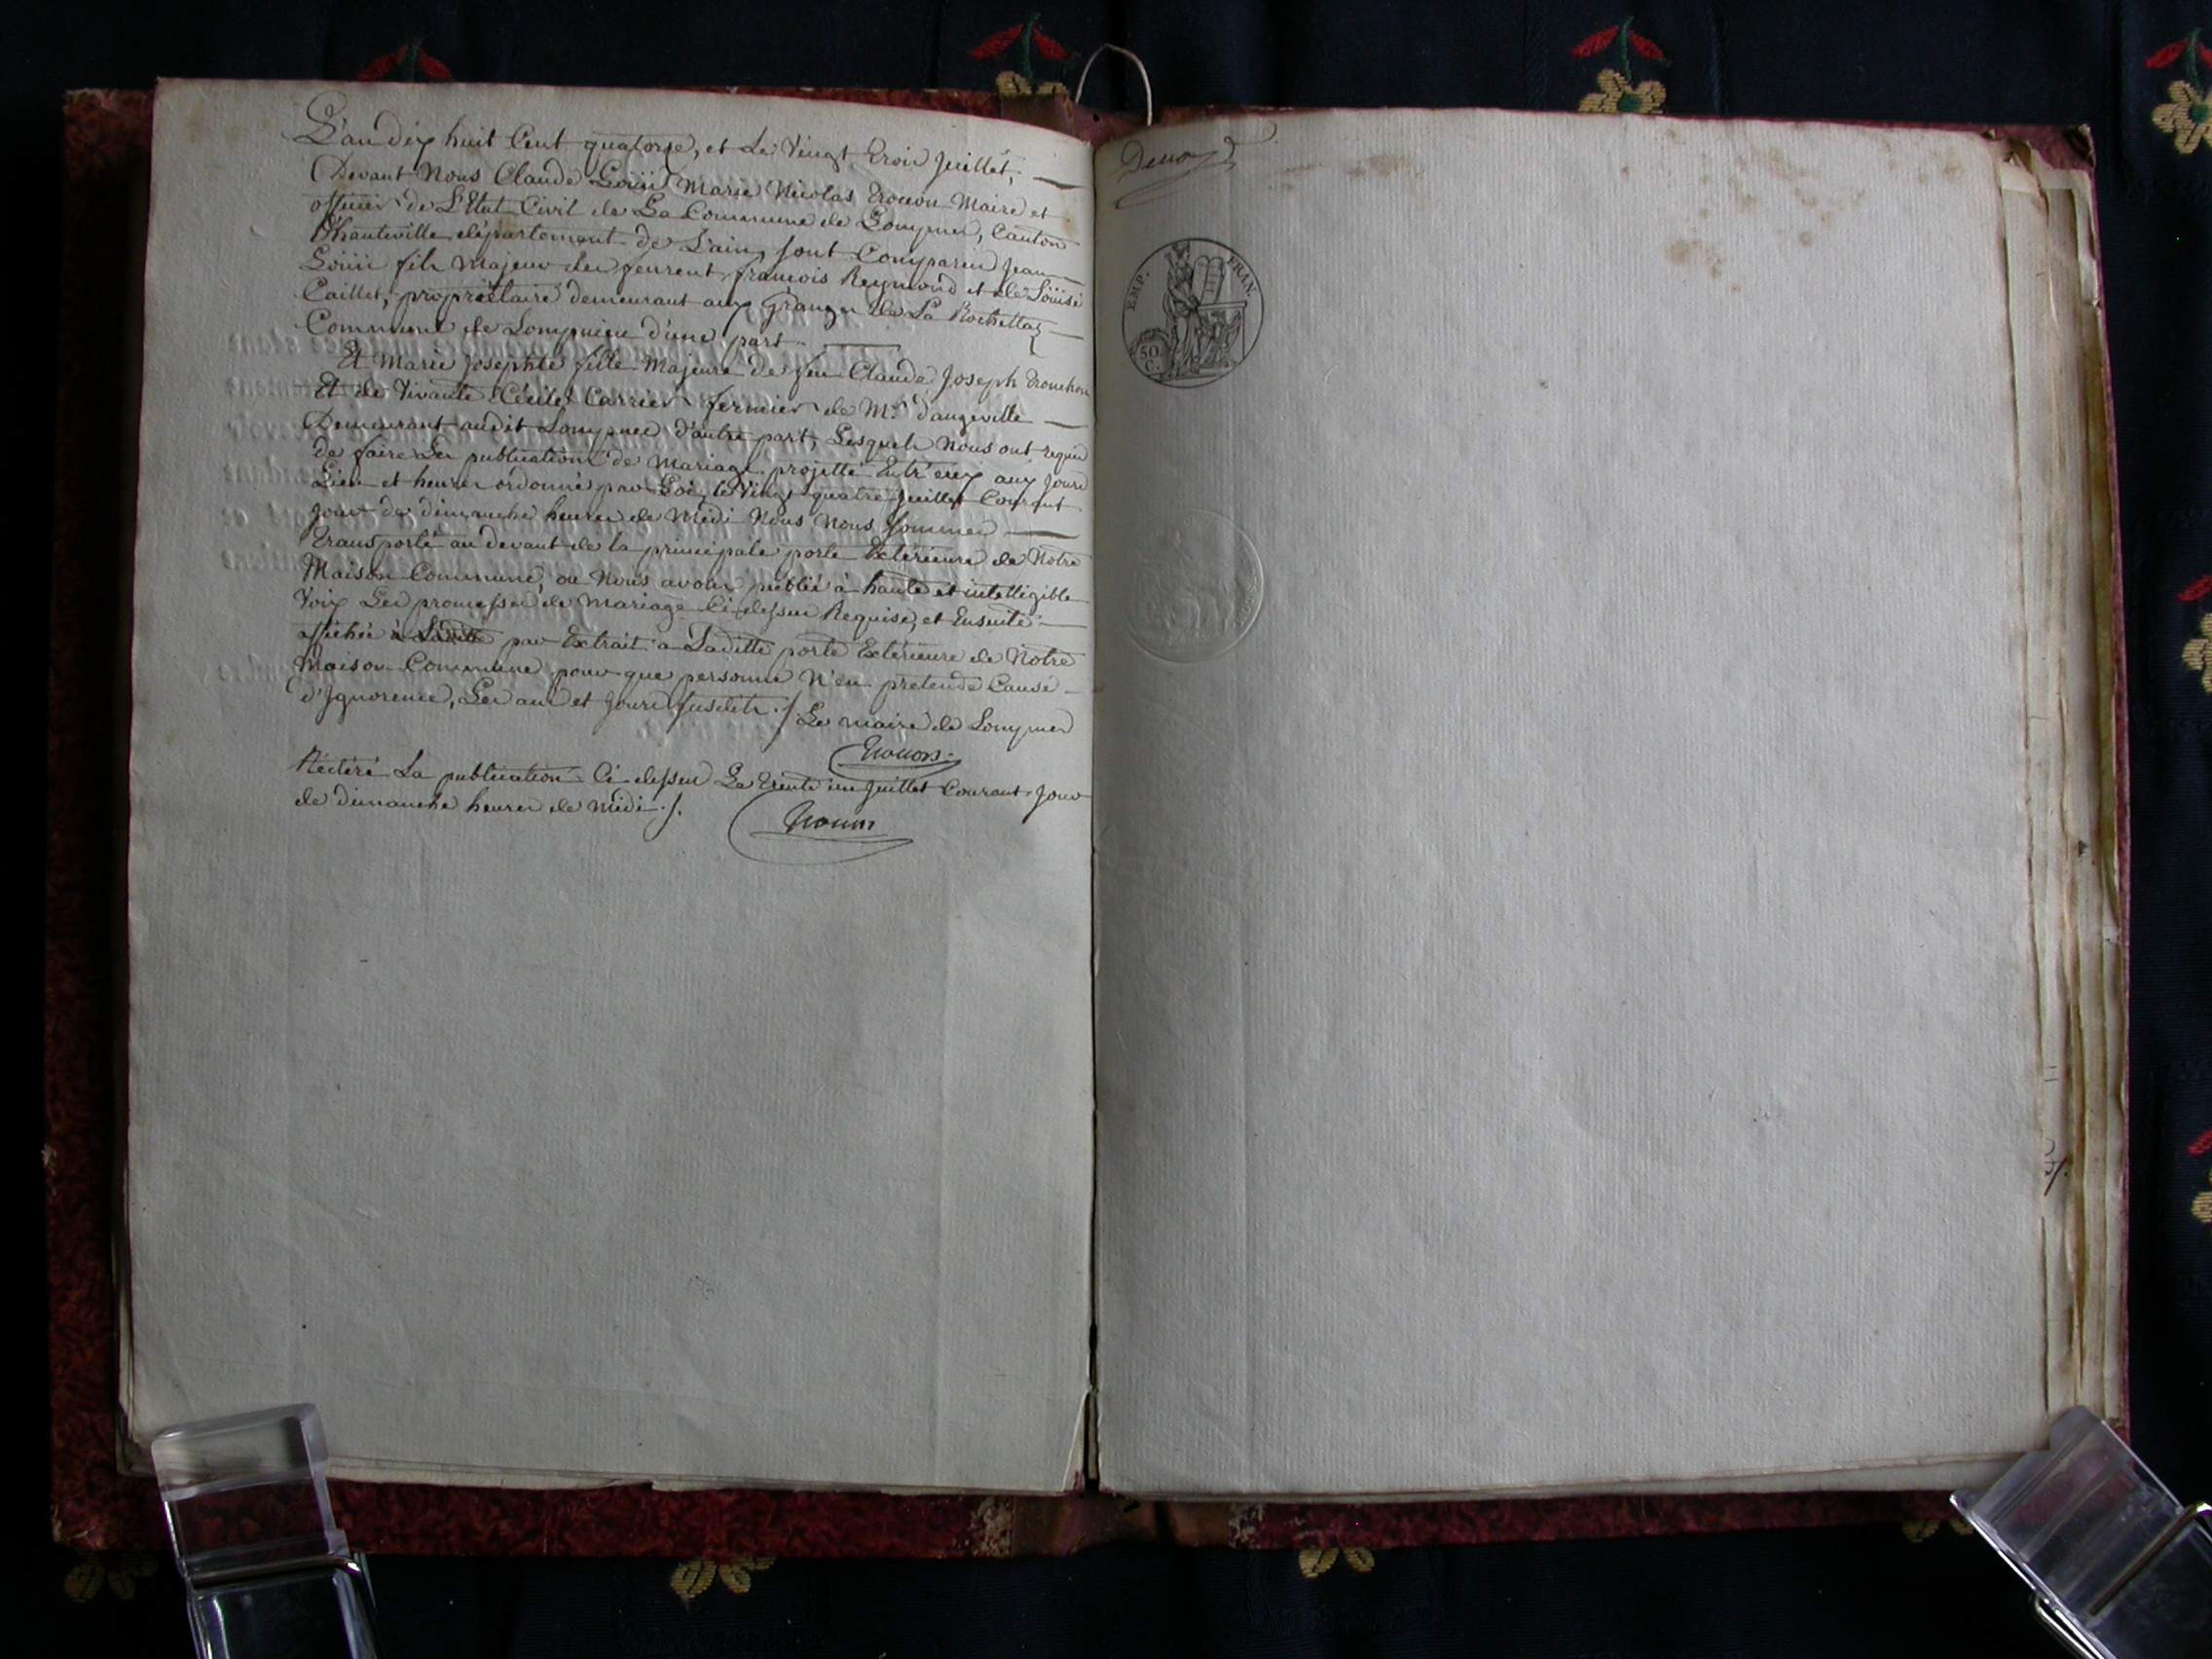 L'an dix huit Cent quatorze, et Le Vingt trois Juillet,
Devant Nous Claude Loüis Marie Nicolas Trocon Maire et
officier de L'Etat Civil de La Commune de Lompnes, Canton
D'hauteville département de L'ain, sont Comparus Jean
Loüis fils Majeur des feurent francois Reymond et de Loüise
Caillet, propriétaire demeurant aux Granges de La Rochettaz
Commune de Lompnieu d'une part
Et Marie Josephte fille Majeure de feu Claude Joseph Tronchon
Et de Vivante Cécile Carrier fermier de Mr. d'angeville
Demeurant audit Lompnes d'autre part, Lesquels Nous ont requis
de faire Les publications de Mariage projetté Entr'eux aux Jours
Lieu et heures ordonné par Loi, le Vingt quatre Juillet Courant
Jour de dimanche heures de Midi Nous Nous sommes
Transporté au devant de la principale porte Extérieure de Notre
Maison Commune, ou Nous avons publié à haute et intelligible
Voix Les promesses de Mariage Ci dessus Requise, et Ensuite
affichée à Laditte par Extrait a Laditte porte Extérieure de Notre
Maison Commune pour que personne N'en pretende Cause
d'Ignorence, Les an et Jours susdits ./. Le maire de Lompnes
Trocon
Réitéré La publication Ci dessus Le Trente un Juillet Courant Jour
de dimanche heures de Midi ./.
Trocon
EMP. FRAN.
50
C.